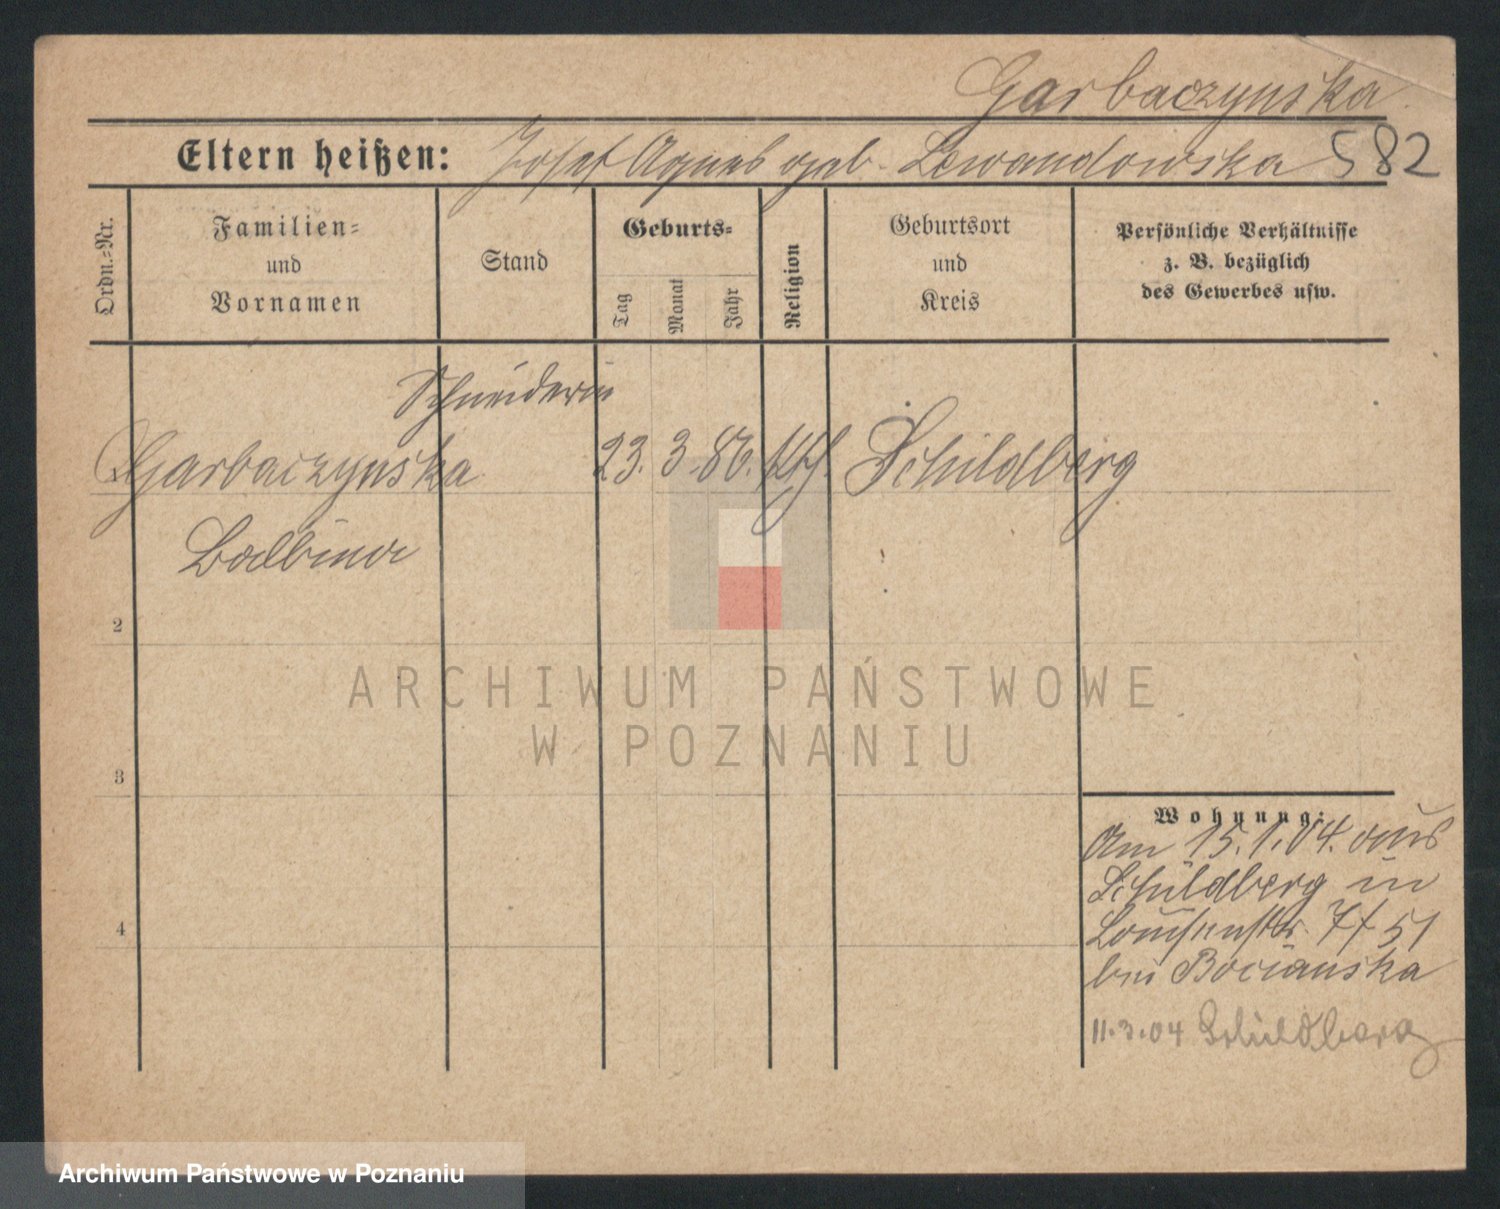 Garbaczynska
Eltern heißen: Josef Agnes geb. Lewandowska 582
Ordn.-Nr.
Familien-
und
Vornamen
Stand
Geburts-
Tag
Monat
Jahr
Religion
Geburtsort
und
Kreis
Persönliche Verhältnisse
z. B. bezüglich
des Gewerbes usw.
Schneiderin
1 Garbaczynska 23. 3. 86. kth. Schildberg
Balbina
2
3
4
ARCHIWUM PAŃSTWOWE
W POZNANIU
Wohnung:
Am 15.1.04. aus
Schildberg in
Louisenstr. 7f 51
bei Bocianska
11.3.04 Schildberg
Archiwum Państwowe w Poznaniu